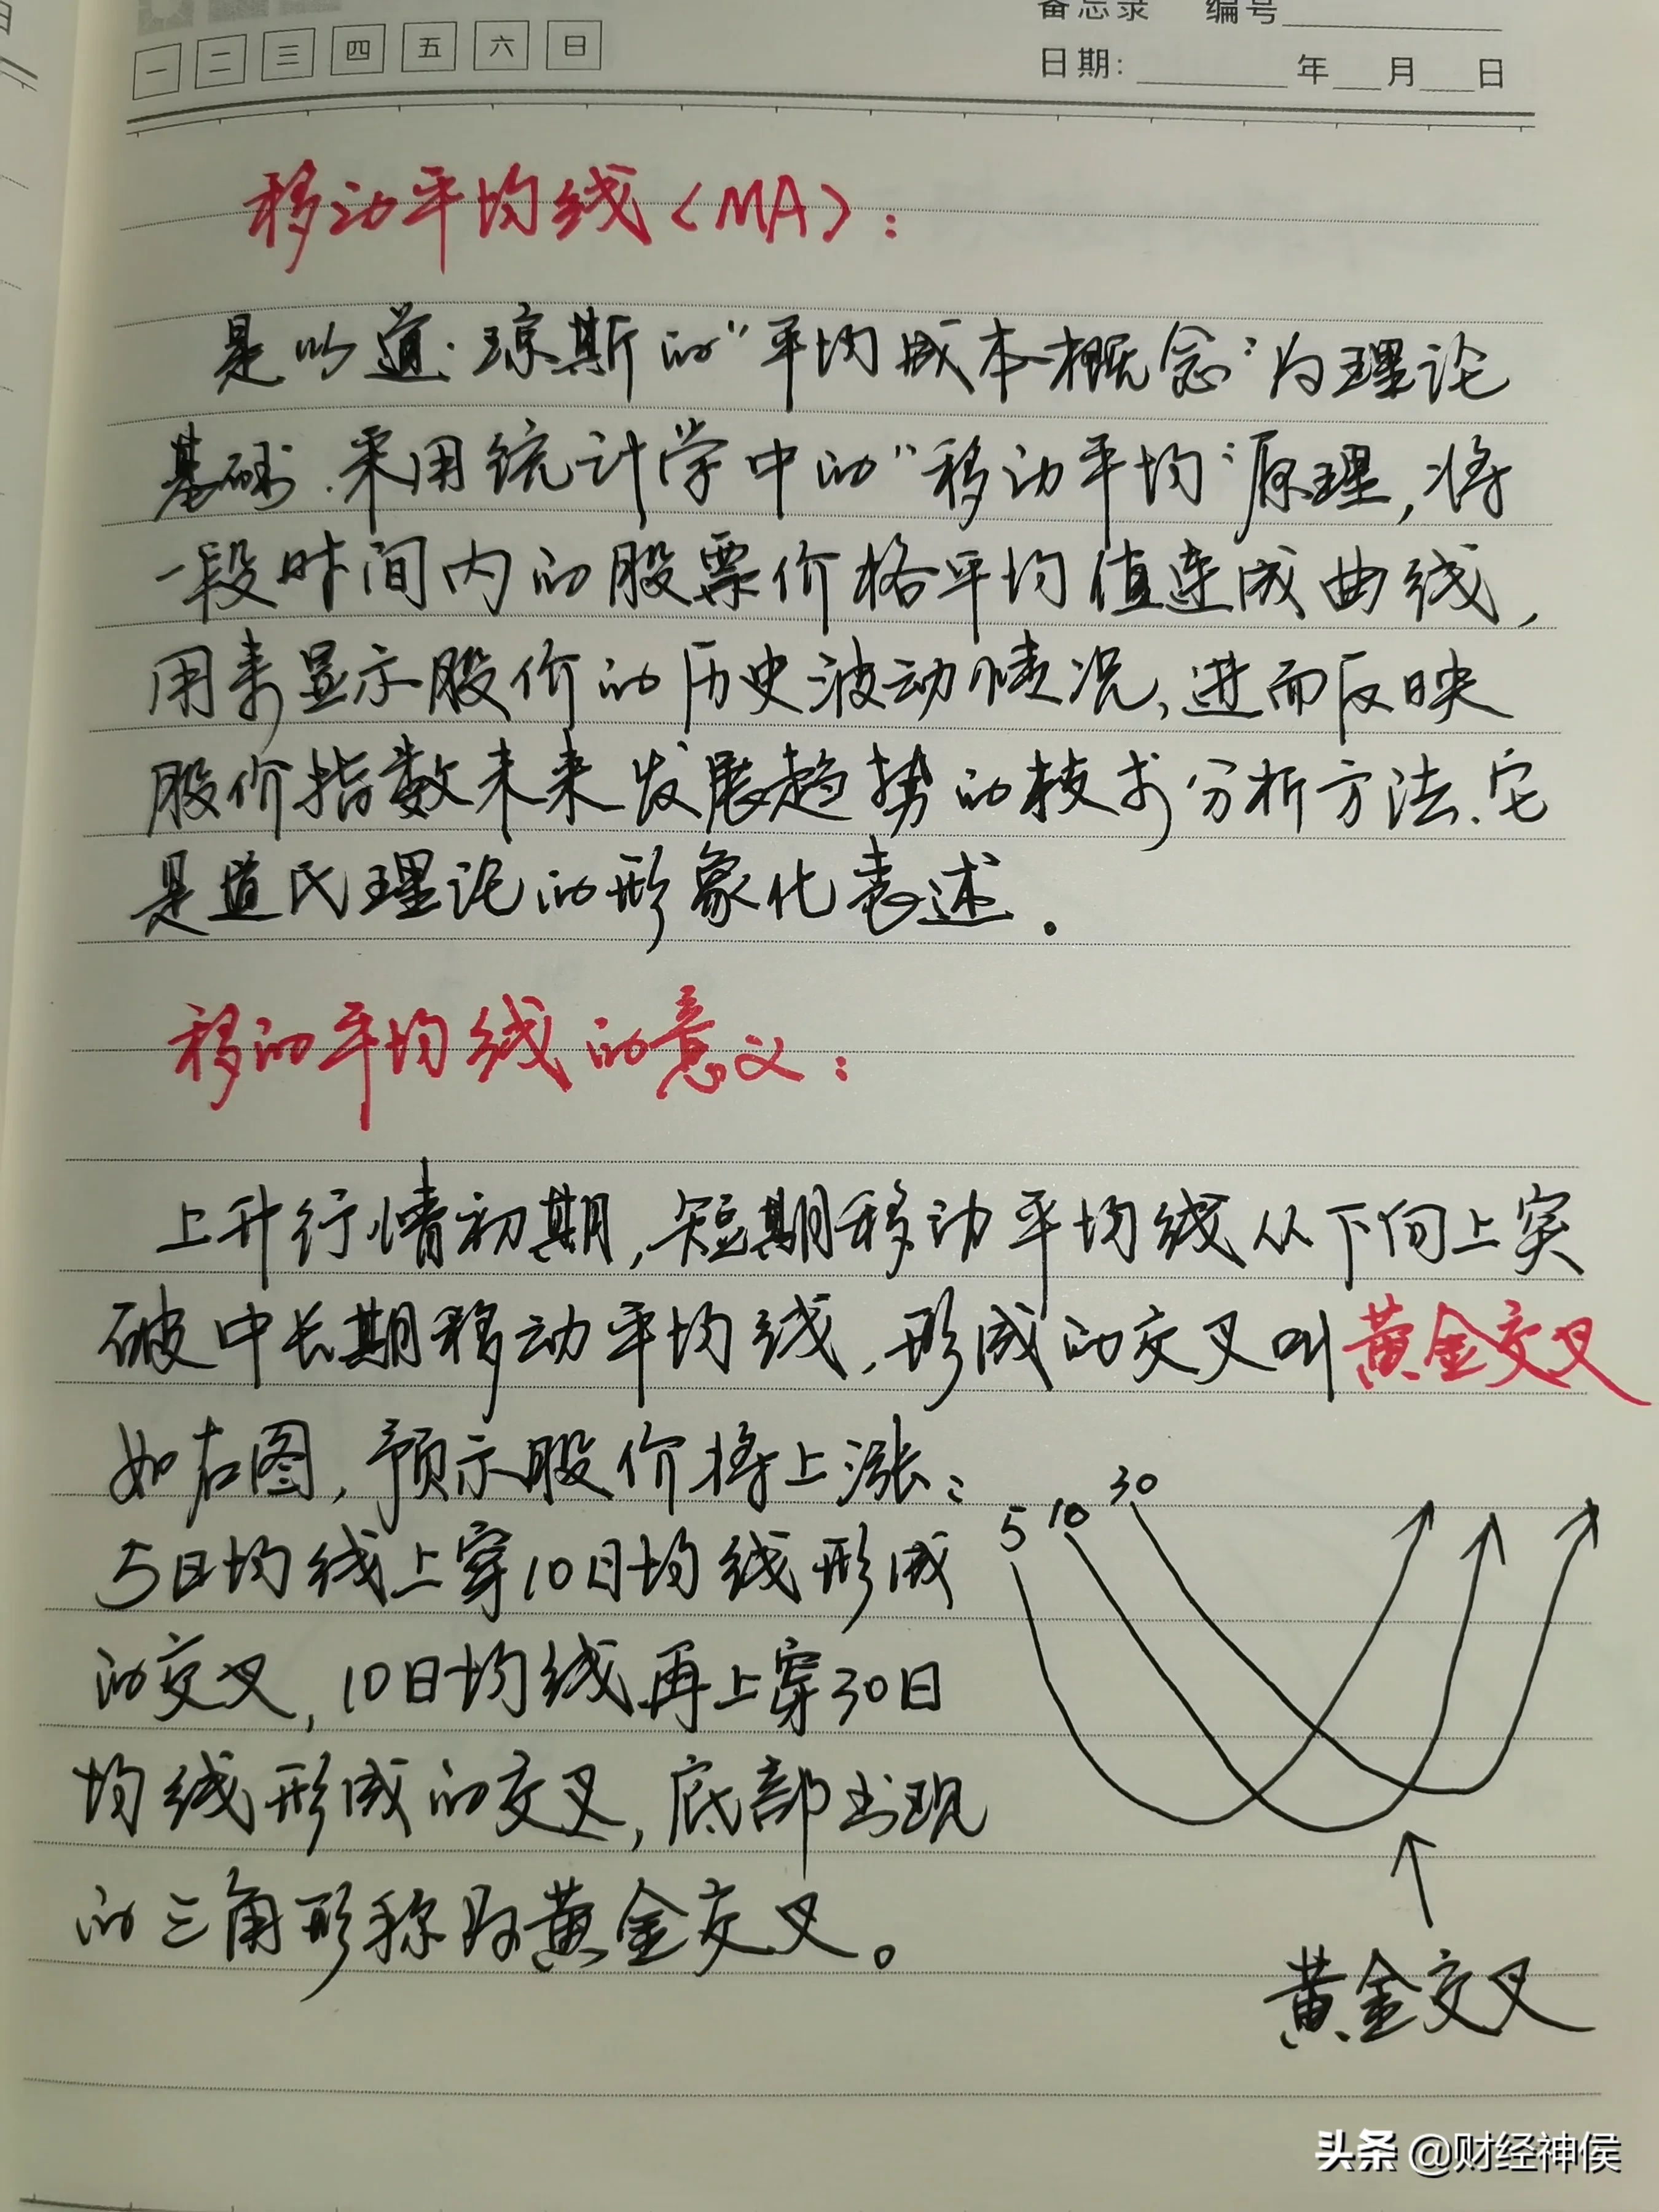 备忘录 编号
一 二 三 四 五 六 日
日期: 年 月 日
移动平均线(MA):
是以道·琼斯的"平均成本概念"为理论
基础.采用统计学中的"移动平均"原理,将
一段时间内的股票价格平均值连成曲线,
用来显示股价的历史波动情况,进而反映
股价指数未来发展趋势的技术分析方法.它
是道氏理论的形象化表述.
移动平均线的意义:
上升行情初期,短期移动平均线从下向上突
破中长期移动平均线,形成的交叉叫黄金交叉
如右图,预示股价将上涨:
5 10 30
5日均线上穿10日均线形成
的交叉,10日均线再上穿30日
均线形成的交叉,底部出现
的三角形称为黄金交叉。
黄金交叉
头条 @财经神侯